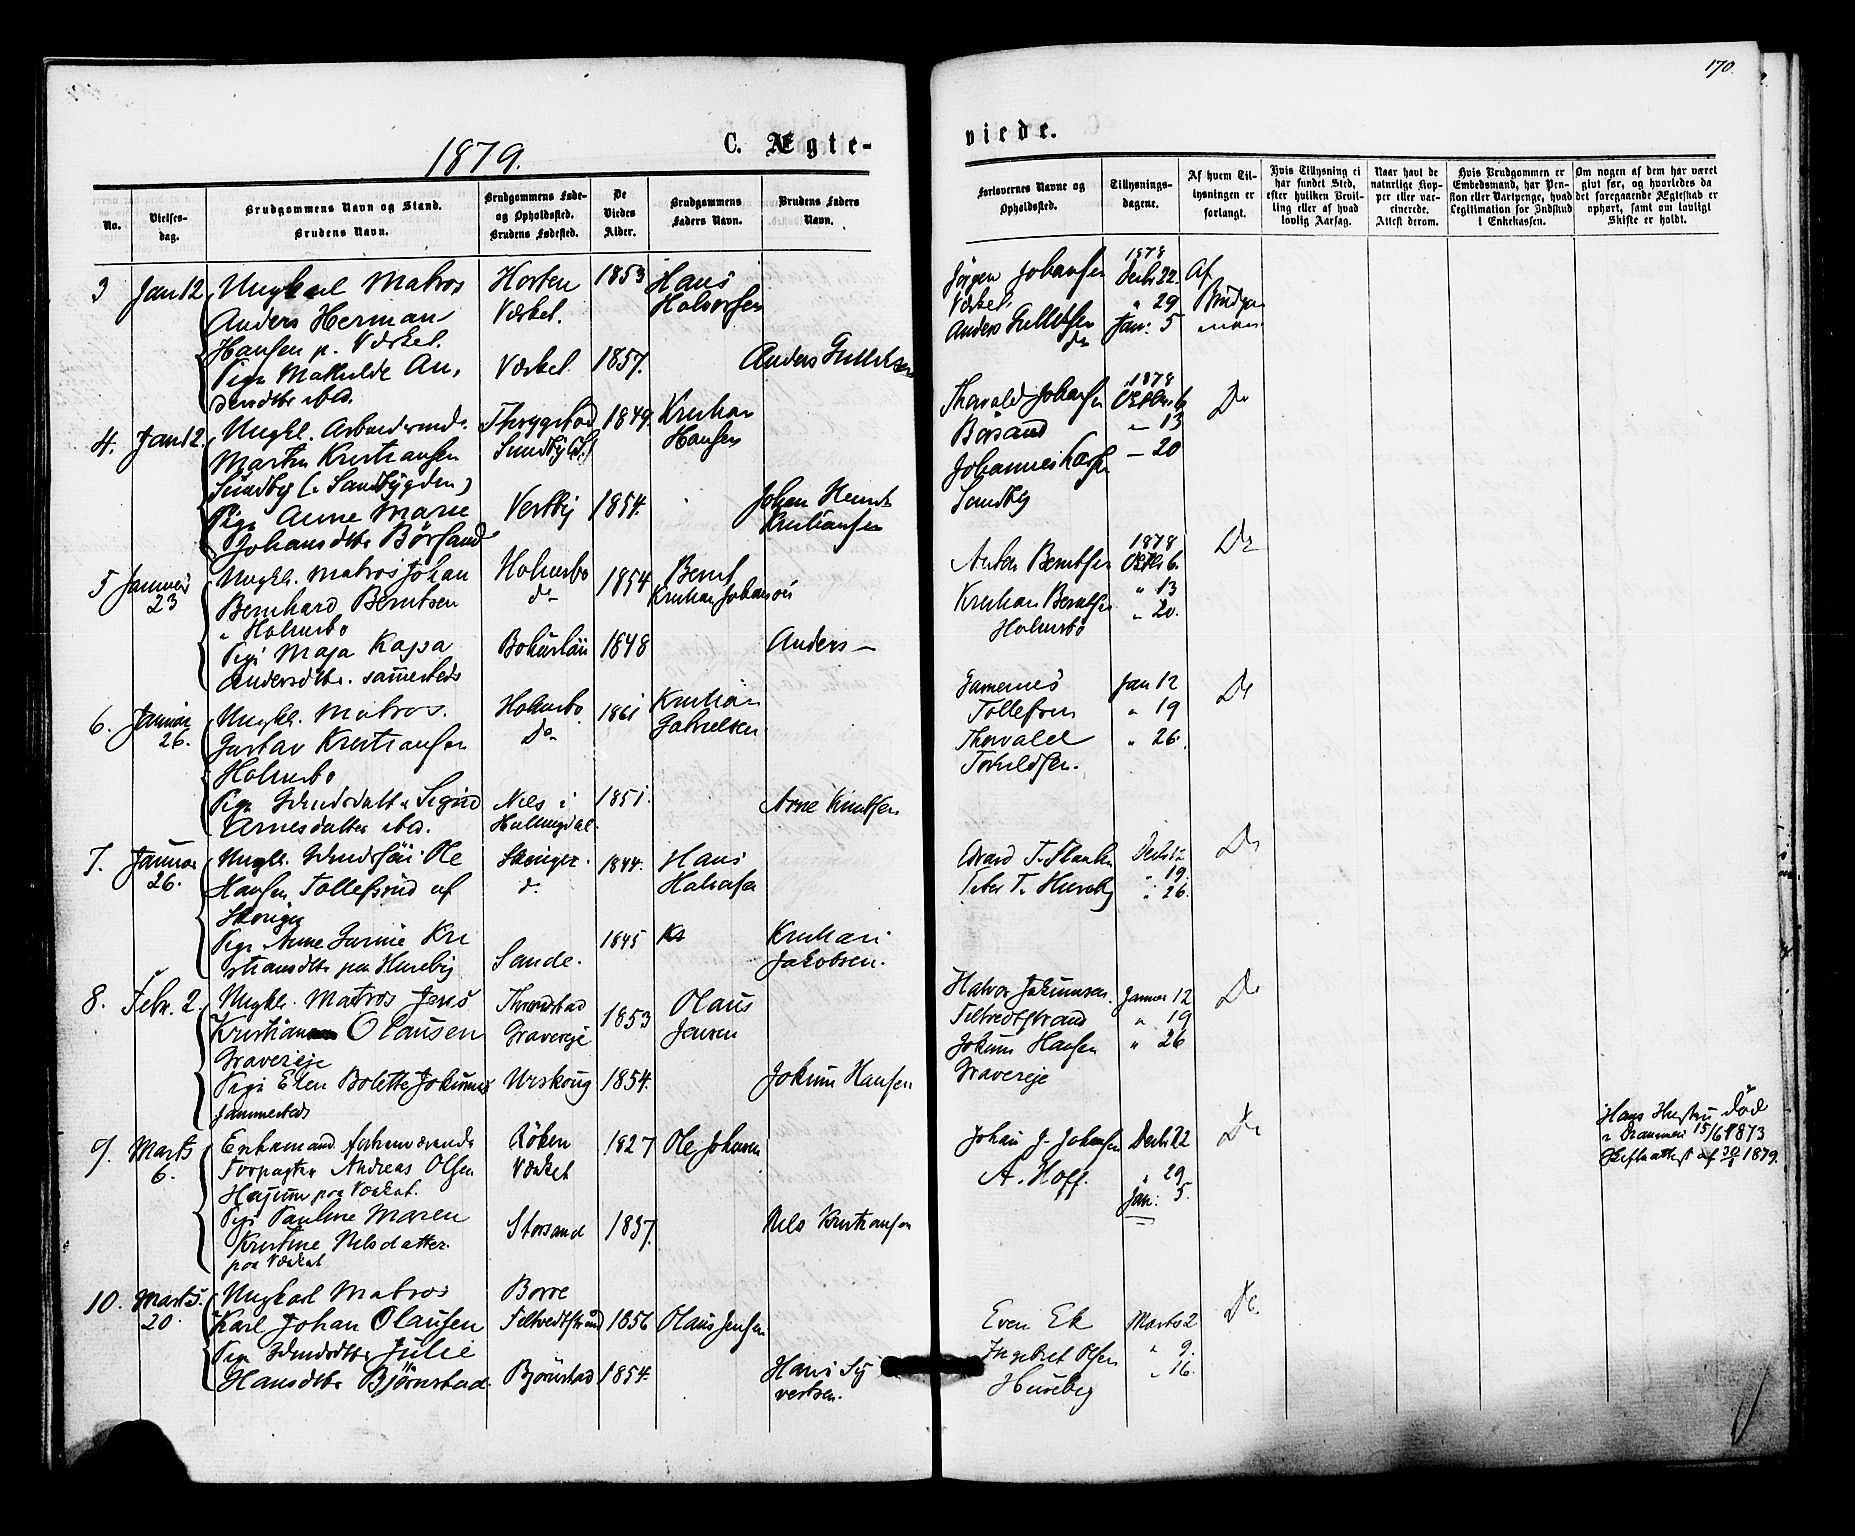 170.
1879.
C. Ægte-
viede.
No.
Vielses-
dag.
Brudgommens Navn og Stand.
Brudens Navn.
Brudgommens Føde-
og Opholdssted.
Brudens Fødested.
De
Viedes
Alder.
Brudgommens
Faders Navn.
Brudens Faders
Navn.
Forlovernes Navne og
Opholdssted.
Tillysnings-
dagene.
Af hvem Til-
lysningen er
forlangt.
Hvis Tillysning ei
har fundet Sted,
efter hvilken Bevil-
ling eller af hvad
lovlig Aarsag.
Naar havt de
naturlige Kop-
per eller var-
cinerede.
Attest derom.
Hvis Brudgommen er
Embedsmand, har Pen-
sion eller Vartpenge, hvad
Legitimation for Indskud
i Enkekassen.
Om nogen af dem har været
gift før, og hvorledes da
det foregaaende Ægteskab er
ophørt, samt om lovligt
Skifte er holdt.
3 Jan 12 Ungkarl Matros Horten 1853 Hans
Anders Herman Værket. Halvorsen
Hansen p. Værket.
Pige Mathilde An- Værket 1857. Anders Gulliksen
dersdtr ibd.
Jørgen Johansen 1878 Decbr 22. Af
Værket. " 29 Brudgom-
Anders Gulliksen Jan: 5 men
do
4. Jan 12. Ungkl. Thrygstad 1849. Kristian
Martin Kristiansen Sundby Hansen
Sundby
Pige Anne Marie Vestby 1854. Johan
Johansdtr Børsand Kristiansen
Thorvald Johansen 1878 Octbr 6 Do
Børsand " 13
Johannes — 20
Sundby
5 Januar Ungkl. Matros Johan Holmsbo 1854 Bernt
23 Bernhard Berntsen do Kristian Johansen
Holmsbo
Pige Maja Kajsa Bohuslän 1848 Anders —
Andersdtr. sammesteds
Anton Berntsen 1878 Octbr 6. Do
Kristian Berntsen " 13
Holmsbo " 20.
6. Januar Ungkl. Matros. Holmsbo 1861 Kristian
26. Gustav Kristiansen do Gabrielsen
Holmsbo
Pige Sigrid Næs i 1851. Arne Knudsen
Arnesdatter ibd. Hallingdal.
Jan 12 Do
Tollefsen " 19
Thorvald " 26.
Torkildsen.
7. Januar Ungkl. Ole Skoger. 1844. Hans
26. Hansen Tollefsrud af do
Skoger
Pige Anne Kri Sande. 1845 Kristian
stiansdtr paa Huseby Jakobsen.
Edvard T. Decbr 12 Do
Peter T. Huseby " 19.
" 26.
8. Febr. 2. Ungkl. Matros Jens 1853 Olaus
Kristian Olausen Gravereje Jensen
Gravereje
Pige Elen Bolette Urskoug 1854. Jokum Hansen
sammesteds
Halvor Januar 12 Do
Filtvedtstrand " 19
Jokum Hansen " 26
Gravereje
9. Marts Enkemand forhenværende Røken 1827 Ole Johansen
6. Forpagter Andreas Olsen Værket
paa Værket.
Pige Pauline Maren Storsand 1837. Nils Kristiansen
Kristine Nilsdatter.
paa Værket
Johan J. Johansen Decbr 22 Do
A. Hoff. " 29
Jan: 5.
Hans Hustru død
i Drammen 15/6 1873
1879.
10. Marts Ungkarl Matros Borre
20. Karl Johan Olausen Filtvedtstrand 1856 Olaus Jensen
Pige Julie
Hansdtr Bjørnstad. Bjørnstad 1854. Hans Sy
vertsen.
Even Ek Marts 2 Do
Ingebret Olsen " 9.
Huseby " 16.